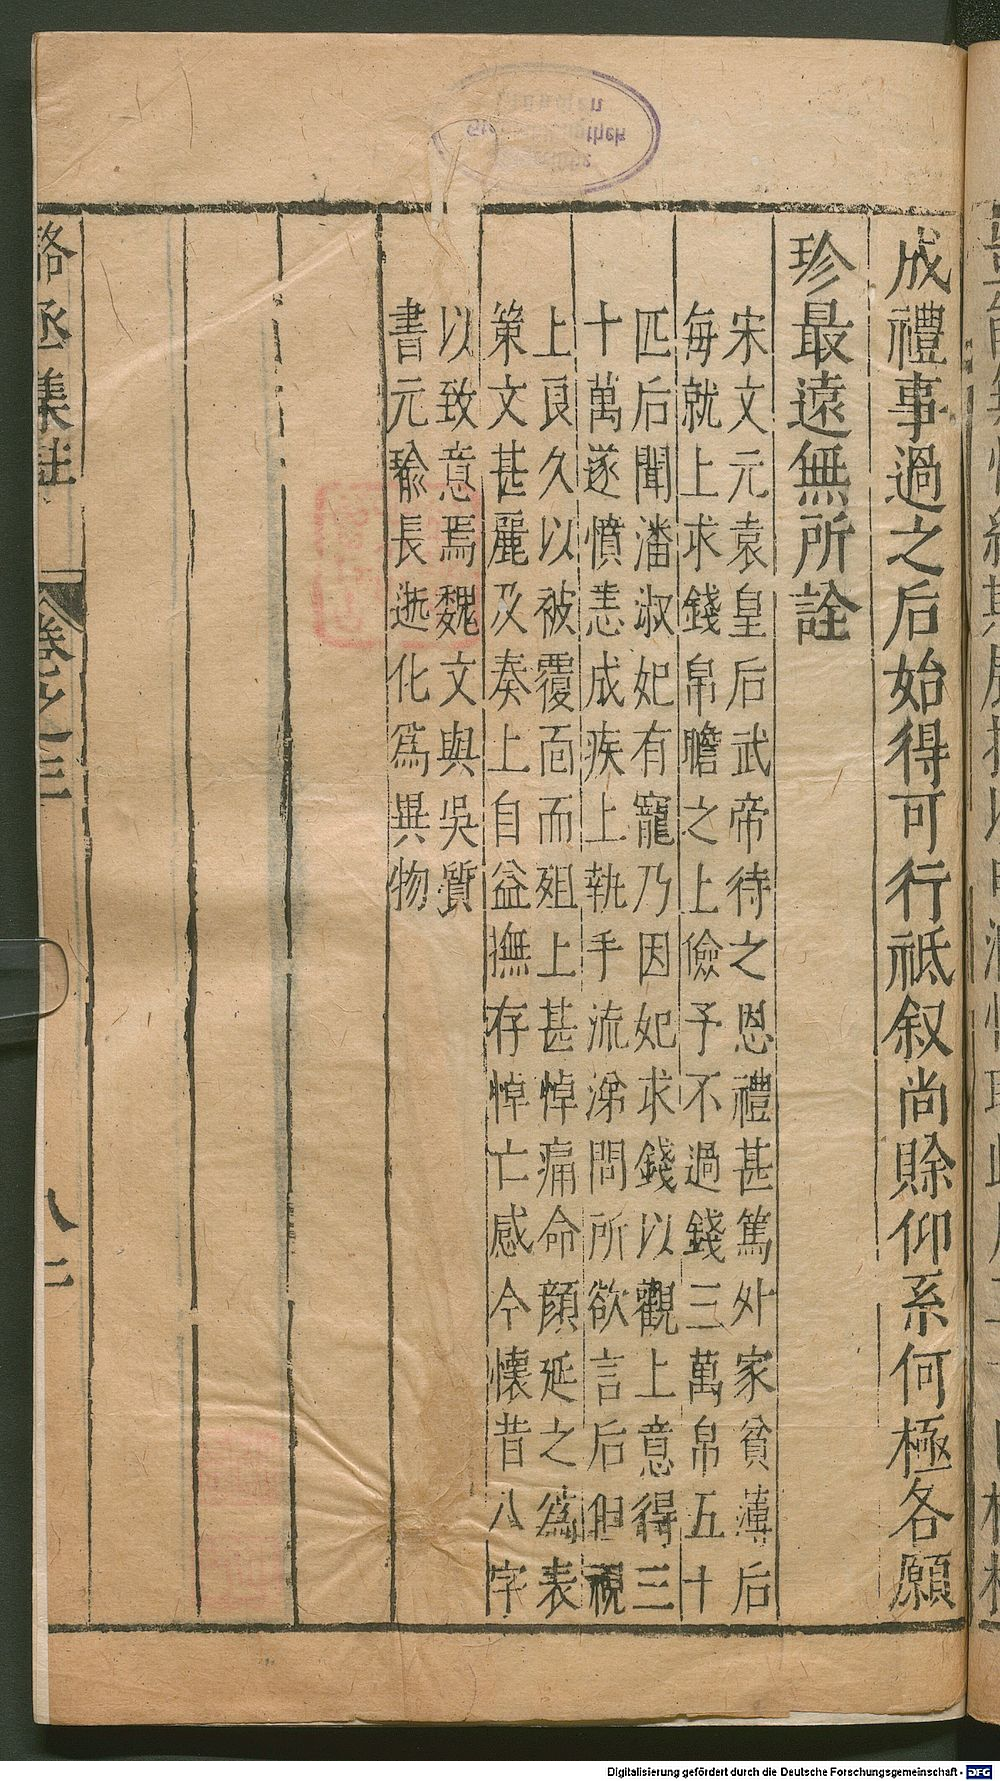 成禮事過之后始得可行祗叙尚賒仰系何極各願
珍最遠無所詮
宋文元袁皇后武帝待之恩禮甚篤外家貧薄后
每就上求錢帛贍之上儉予不過錢三萬帛五十
匹后聞潘淑妃有寵乃因妃求錢以觀上意得三
十萬遂憤恚成疾上執手流涕問所欲言后但視
上良久以被覆面而殂上甚悼痛命顔延之為表
策文甚麗及奏上自益撫存悼亡感今懷昔八字
以致意焉魏文與吳質
書元瑜長逝化爲異物
駱丞集註
卷之三
八十二
Digitalisierung gefördert durch die Deutsche Forschungsgemeinschaft - DFG